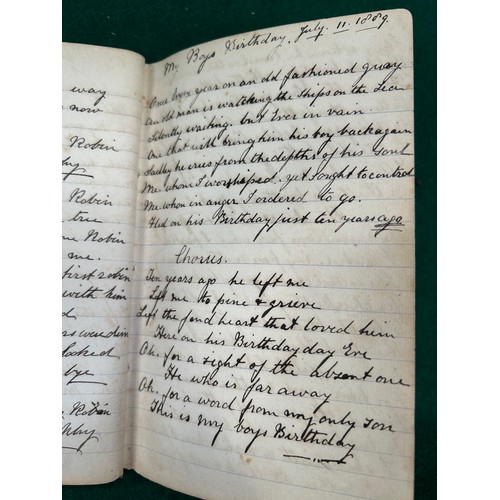 way
now
Robin
Robin
true
me Robin
me.
first robin
with him
d
rs were dim
looked
bye
Robin
My Boys Birthday. July. 11. 1889.
Once every year on an old fashioned quay
An old man is watching the ships on the Sea
Silently waiting. but Ever in vain.
One that will bring him his boy back again
Sadly he cries from the depths of his soul
Me. whom I worshiped. yet sought to control
Me whom in anger I ordered to go.
Fled on his Birthday just ten years ago
Chorus.
Ten years ago he left me
Left me to pine & grieve
Left the fond heart that loved him
Here on his Birthday day Eve
Oh. for a sight of the absent one
He who is far away
Oh. for a word from my only Son
This is my boys Birthday